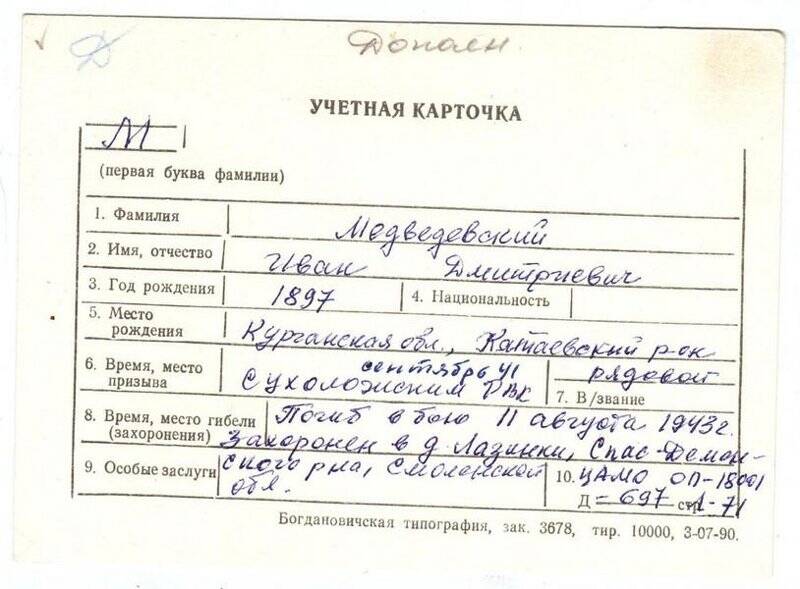 Д Дополн.
УЧЕТНАЯ КАРТОЧКА
М
(первая буква фамилии)
1. Фамилия Медведевский
2. Имя, отчество Иван Дмитриевич
3. Год рождения 1897 4. Национальность
5. Место рождения Курганская обл., Катаевский рон
6. Время, место призыва сентябрь 41 Сухоложским РВК
рядовой
7. В/звание
8. Время, место гибели (захоронения) Погиб в бою 11 августа 1943г.
Захоронен в д. Лазинки, Спас-Демен-
9. Особые заслуги ского р-на, Смоленской
обл.
10. ЦАМО ОП-18001
Д = 697 стр 71
Богдановичская типография, зак. 3678, тир. 10000, 3-07-90.